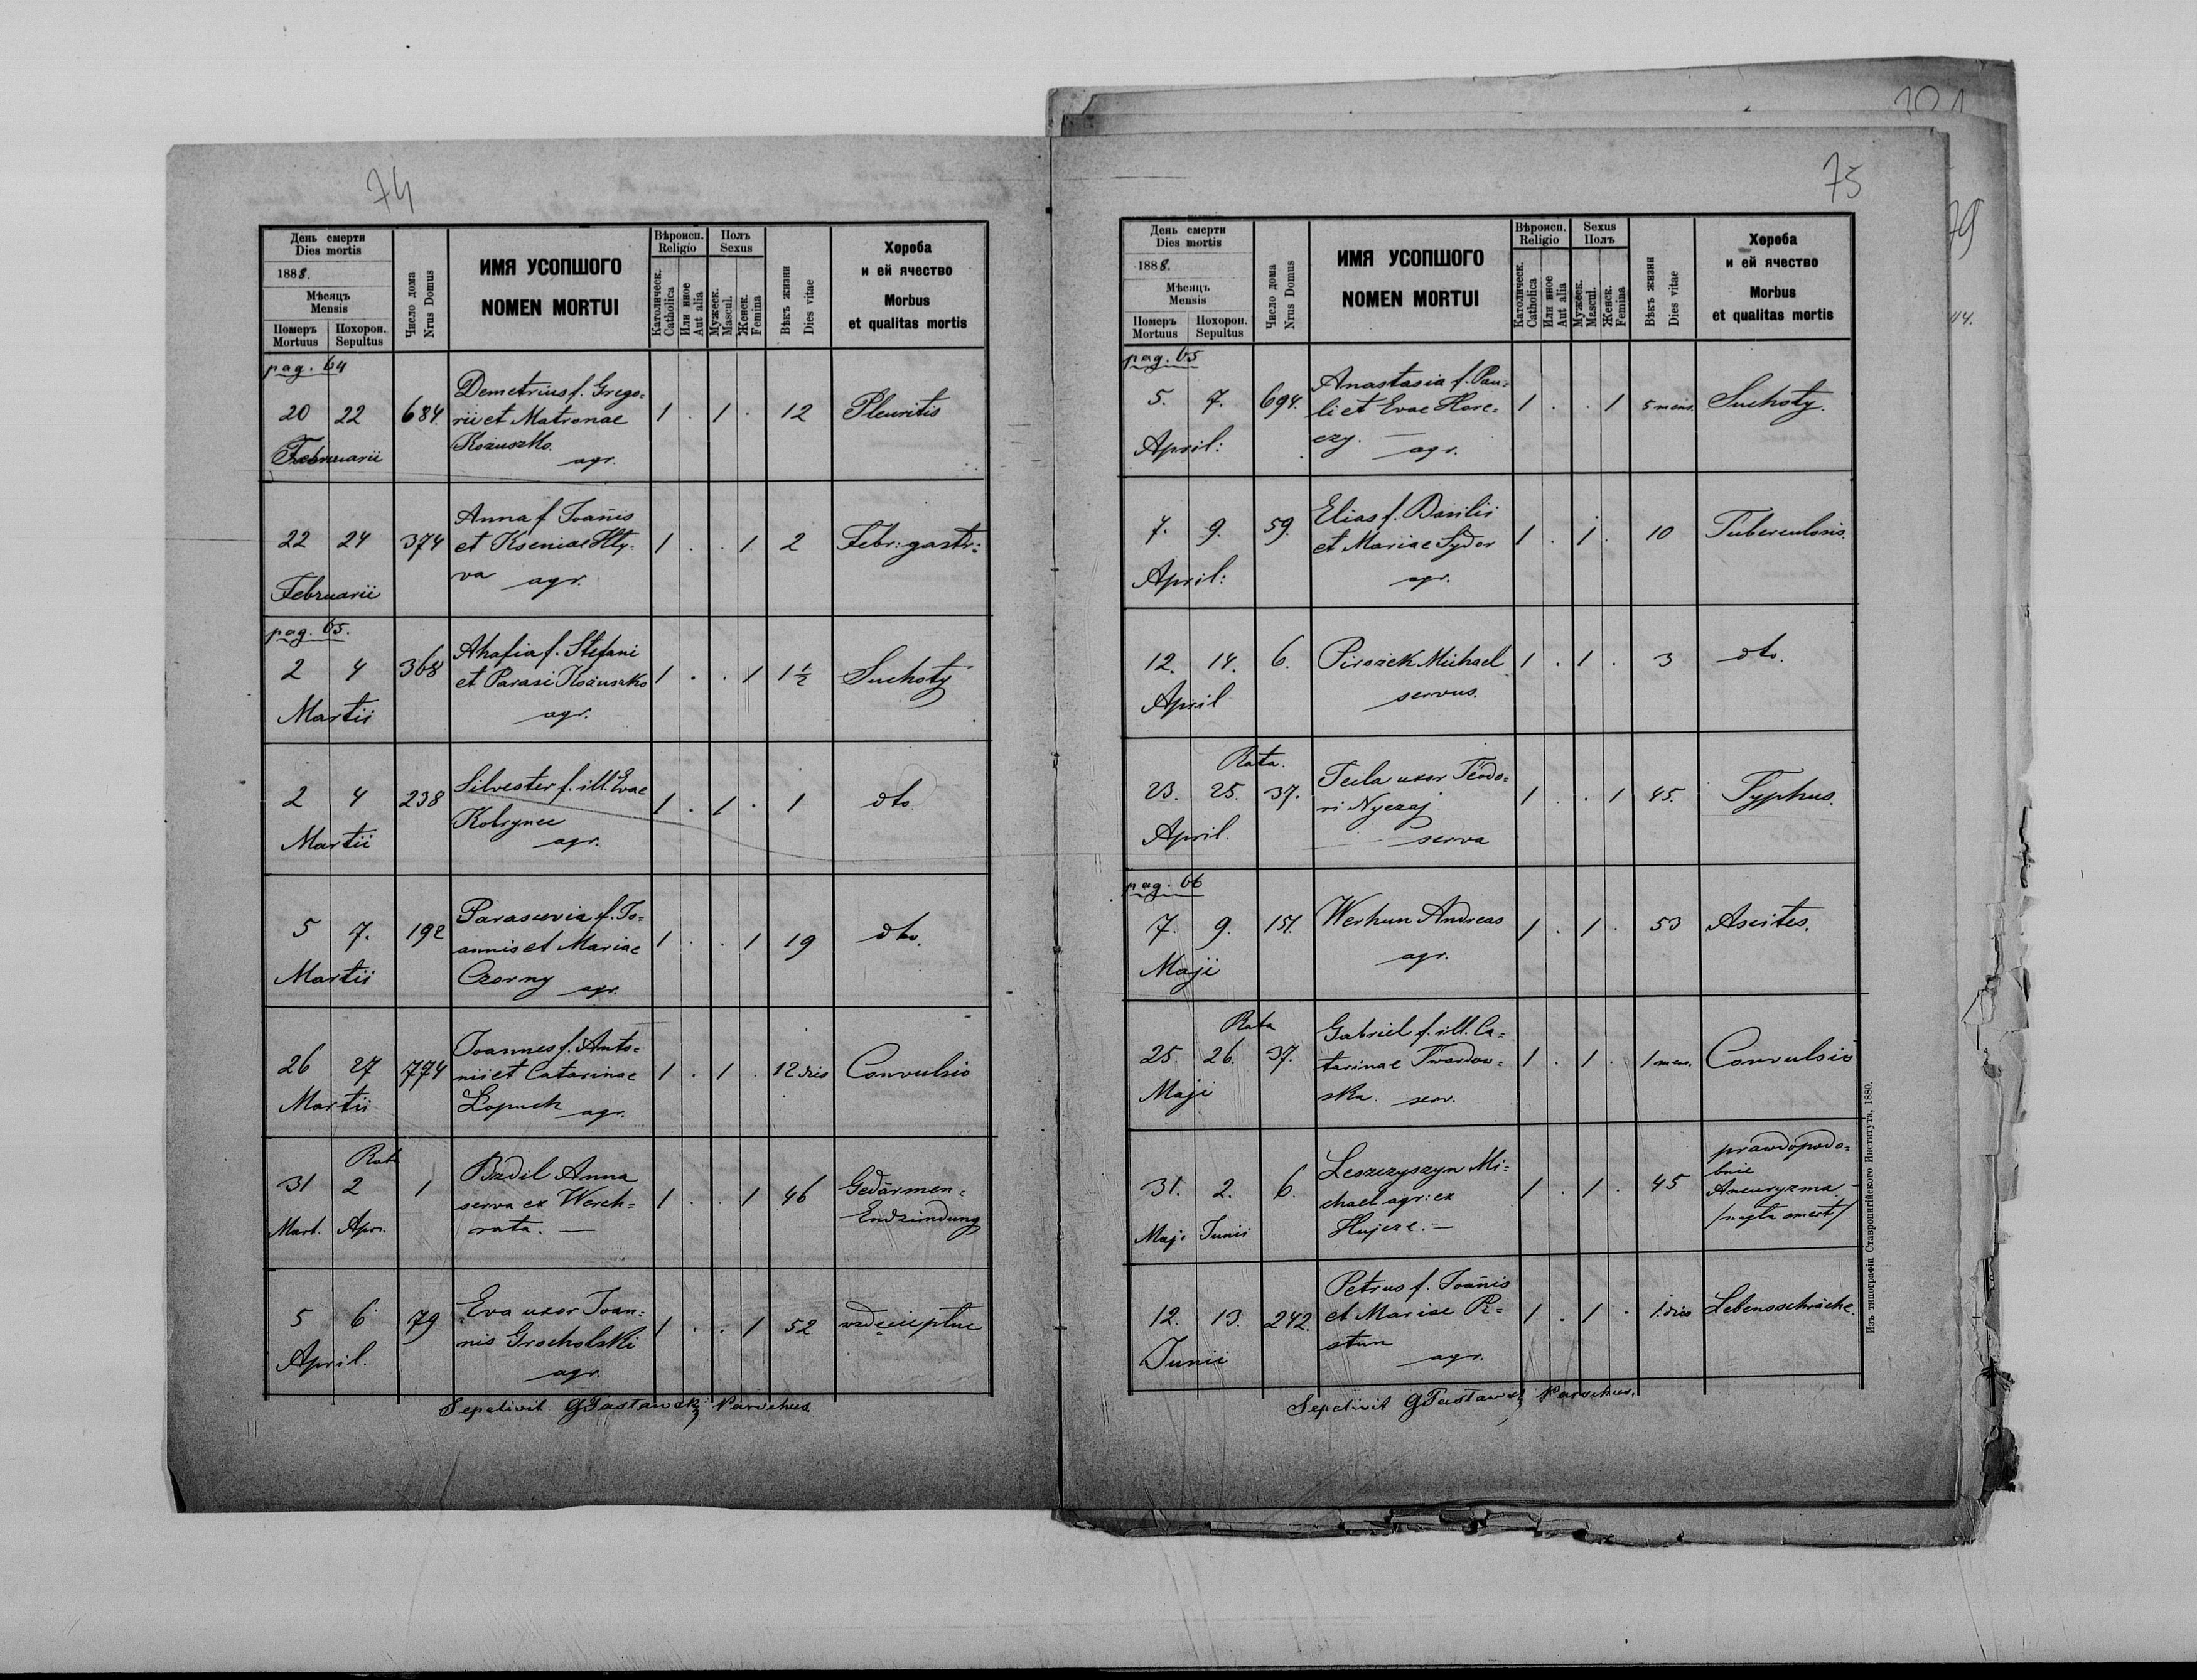 74
День смерти
Dies mortis
1888.
Мѣсяцъ
Mensis
Померъ Похорон.
Mortuus Sepultus
Число дома
Nrus Domus
ИМЯ УСОПШОГО
NOMEN MORTUI
Вѣроисп.
Religio
Католическ.
Catholica
Или иное
Aut alia
Полъ
Sexus
Мужеск.
Mascul.
Женск.
Femina
Вѣкъ жизни
Dies vitae
Хороба
и ей ячество
Morbus
et qualitas mortis
pag. 64
20 22 684. Demetrius f. Grego=
rii et Matronae
Kożuszko.
agr.
1 . 1 . 12 Pleuritis
Februarii
22 24 374 Anna f Ioañis
et Kseniae Hly=
va agr.
1 . . 1 2 Febr: gastr:
Februarii
pag. 65.
2 4 368 Ahafia f. Stefani
et Parasi Kożuszko
agr.
1 . . 1 1½ Suchoty
Martii
2 4 238 Silvester f. ill. Evae
Kobrynec
agr.
1 . 1 . 1 dto.
Martii
5 7. 192 Parascevia f. Io=
annis et Mariae
Czorny agr.
1 . . 1 19 dto.
Martii
26 27 774 Joannes f. Anto=
nii et Catarinae
Łopuch agr.
1 . 1 . 12 dies Convulsio
Martii
Rata
31 2 1 Bzdil Anna
serva ex Werch=
rata. —
1 . . 1 46 Gedärmen=
Endzimdung
Mart. Apr.
5 6 79 Eva uxor Ioan=
nis Grocholski
agr.
1 . . 1 52 rozdęcie płuc
April.
Sepelivit Parochus
75
День смерти
Dies mortis
1888.
Мѣсяцъ
Mensis
Померъ Похорон.
Mortuus Sepultus
Число дома
Nrus Domus
ИМЯ УСОПШОГО
NOMEN MORTUI
Вѣроисп.
Religio
Католическ.
Catholica
Или иное
Aut alia
Sexus
Полъ
Мужеск.
Mascul.
Женск.
Femina
Вѣкъ жизни
Dies vitae
Хороба
и ей ячество
Morbus
et qualitas mortis
pag. 65
5. 7. 694. Anastasia f. Pau=
li et Evae Hore=
czy. — agr.
1 . . 1 5 mens. Suchoty.
April:
7. 9. 59. Elias f. Basilii
et Mariae Sydor
agr.
1 . 1 . 10 Tuberculosis.
April:
12. 14. 6. Pirożek Michael
servus.
1 . 1 . 3 dto.
April
Rata.
23. 25. 37. Tecla uxor Teodo=
ri Nyczaj
serva
1 . . 1 45. Typhus.
April.
pag. 66
7. 9. 151. Werhun Andreas
agr.
1 . 1 . 53 Ascites.
Maji
Rata
25. 26. 37. Gabriel f. ill. Ca=
tarinae Twardow=
ska. serv.
1 . 1 . 1 mens. Convulsio
Maji
31. 2. 6. Leszczyszyn Mi=
chael agr: ex
Hujcze. —
1 . 1 . 45 prawdopodo=
bnie
Aneuryzma —
/nagła smert/
Maji Junii
12. 13. 242. Petrus f. Ioañis
et Mariae Pi=
stun
agr.
1 . 1 . 1. dies Lebensschwäche.
Junii
Sepelivit Parochus.
Изъ типографіи Ставропигійского Института, 1880.
101
79
44.